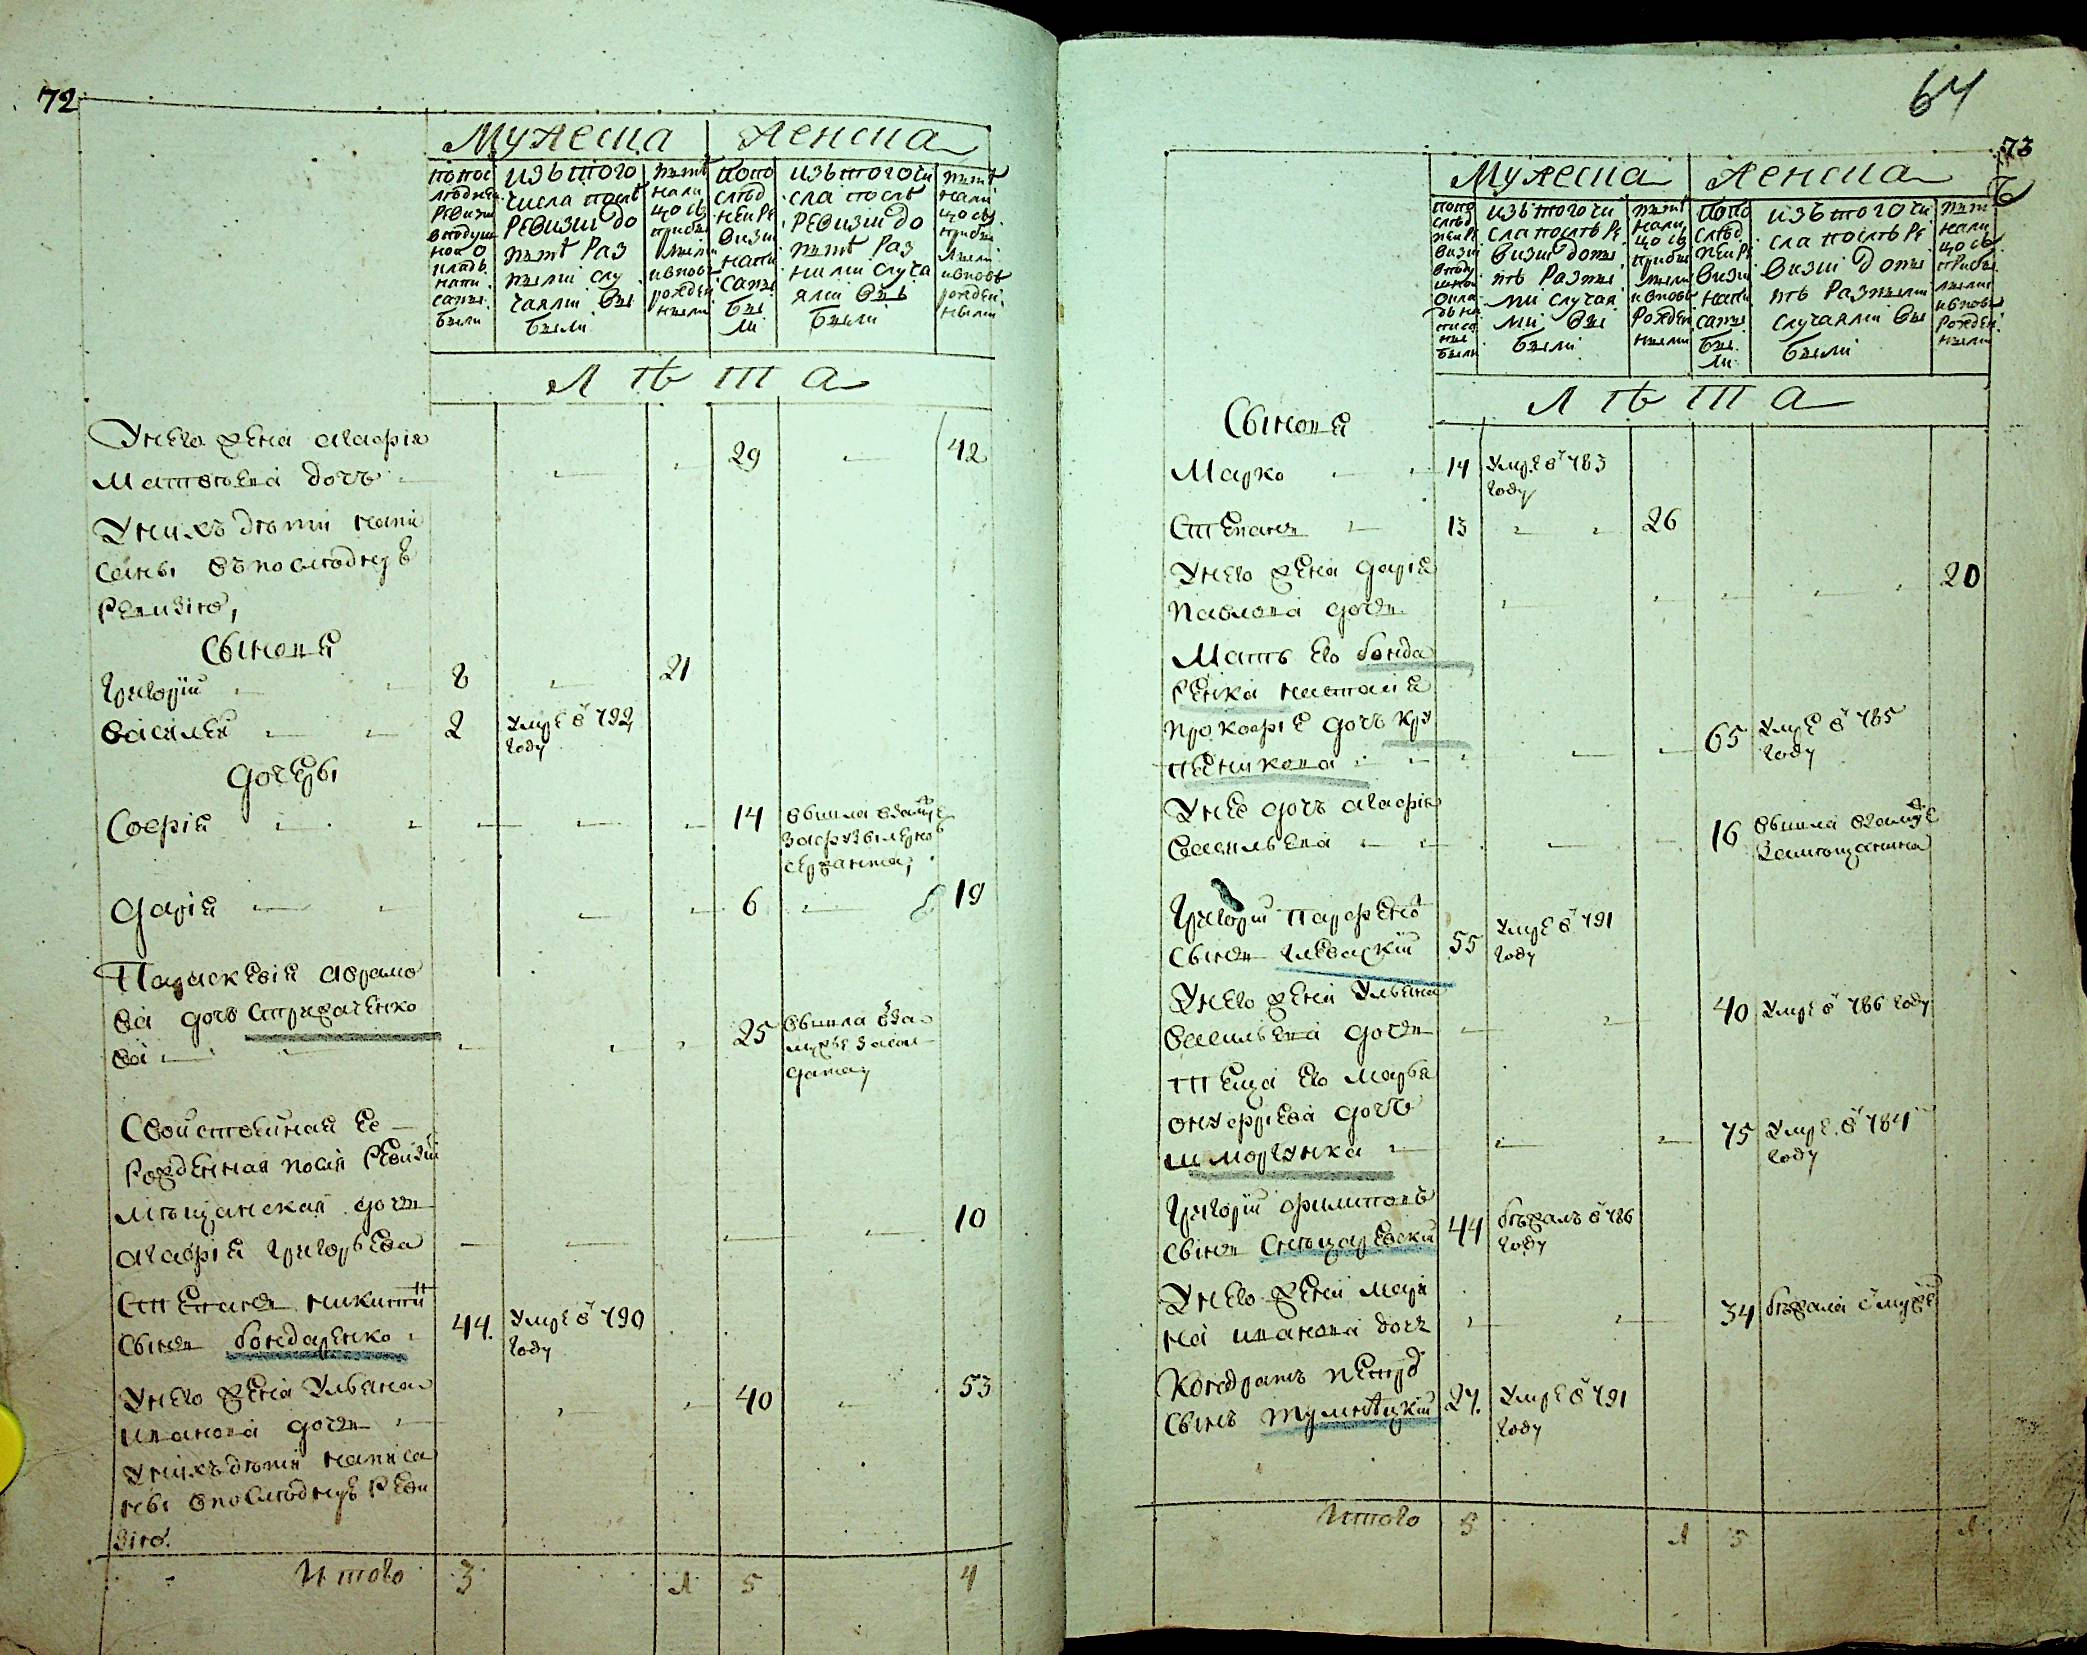 72
Мужеска Женска
по пос
ледней
ревизи
в подуш
ной о
кладъ
напи
саны
были
изъ того
числа послѣ
ревизии до
нынѣ раз
ными слу
чаями вы
были
нынѣ
нали
цо съ
прибы
лыми
и вновь
рожден
ными
по по
слѣд
ней ре
визи
напи
саны
бы
ли
изъ того чи
сла послѣ
ревизии до
нынѣ раз
ными случа
ями вы
были
нынѣ
нали
цо съ
прибы
лыми
и вновь
рожден
ными
Лѣта
У него жена Агафія 29 42
Матвѣева дочь
У нихъ дѣти напи
саны въ последнеѣ
ревизіѣ,
Сыновя
Григорій 8 21
Василей 2 умре в 792
году
Дочеры
Софія 14 вышла взамуже
за
сержанта,
Дарія 6 19
Параскевія Аврамо
ва дочь Стрижаченко
ва 25 вышла вза
мужъ за сол
дата
Свойственная ее
рожденная посля ревизи
мѣщанская дочь
Агафія Григорьева 10
Степанъ Никити
сынъ Бондаренко 44. умре в 790
году
У него жена Ульяна 40 53
Иванова дочь
У нихъ дѣти написа
ны в последнеѣ реви
зіѣ.
Итого 3 1 5 4
64
73
Мужеска Женска
по по
слѣд
ней ре
визи
в поду
шной
окла
дъ на
писа
ны
были
изъ того чи
сла послѣ ре
визии до ны
нѣ разны
ми случая
ми вы
были
нынѣ
нали
цо съ
прибы
лыми
и вновь
рожден
ными
по по
слѣд
ней ре
визи
напи
саны
бы
ли
изъ того чи
сла послѣ ре
визии до ны
нѣ разными
случаями вы
были
нынѣ
нали
цо съ
прибы
лыми
и вновь
рожден
ными
Лѣта
Сыновя
Марко 14 умре в 783
году
Степанъ 13 26
У него жена Дарія 20
Павлова дочь
Мать его Бонда
ренка Наталія
Прокофіе дочь Кру
пеникова 65 умре в 785
году
У нее дочь Агафія
Васильева 16 вышла взамуже
за мѣщанина
Григорій Парфено
сынъ Гаевскій 55 умре в 791
году
У него жена Ульяна
Васильева дочь 40 умре в 786 году
теща его Марья
Онуфріева дочь
Шморгунка 75 умре в 784
году
Григорій Филиповъ
сынъ Снѣцаревски 44 бѣжалъ в 786
году
У него жена Мари
на Иванова дочь 34 бѣжала с муже
Кондратъ Петро
сынъ Тулинецкій 27. умре в 791
году
Итого 5 1 5 1